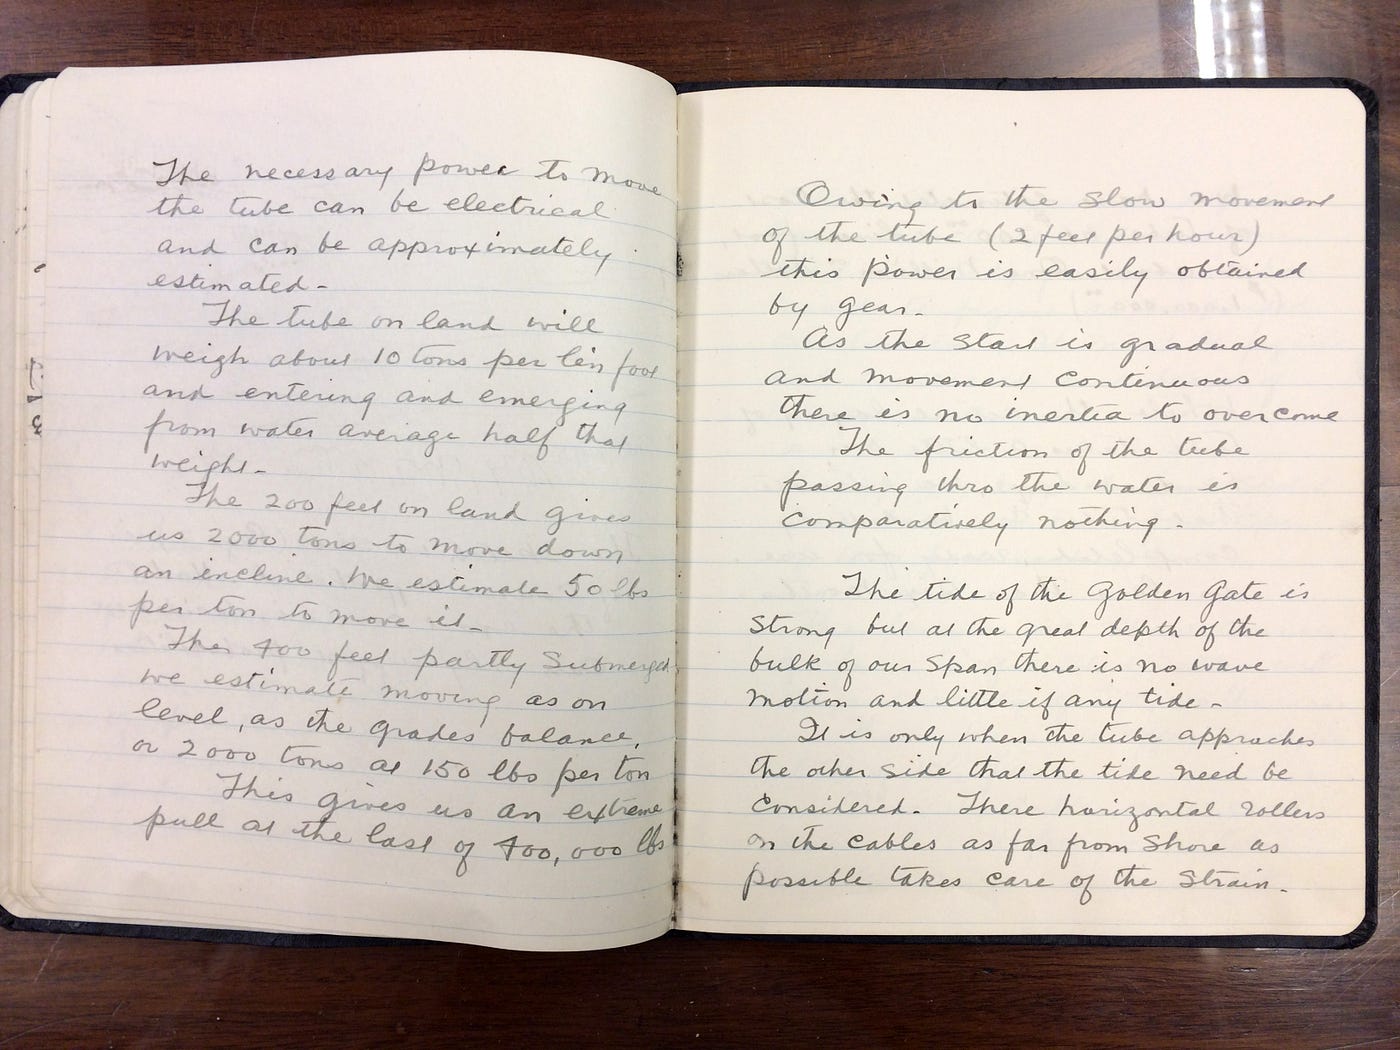 The necessary power to move
the tube can be electrical
and can be approximately
estimated -
The tube on land will
weigh about 10 tons per lin foot
and entering and emerging
from water average half that
weight -
The 200 feet on land gives
us 2000 tons to move down
an incline. We estimate 50 lbs
per ton to move it -
The 400 feet partly submerged
we estimate moving as on
level, as the grades balance,
or 2000 tons at 150 lbs per ton
This gives us an extreme
pull at the last of 400,000 lbs
Owing to the slow movement
of the tube (2 feet per hour)
this power is easily obtained
by gear.
As the start is gradual
and movement continuous
there is no inertia to overcome
The friction of the tube
passing thro the water is
comparatively nothing.
The tide of the Golden Gate is
strong but at the great depth of the
bulk of our span there is no wave
motion and little if any tide -
It is only when the tube approaches
the other side that the tide need be
considered. There horizontal rollers
on the cables as far from shore as
possible takes care of the strain.